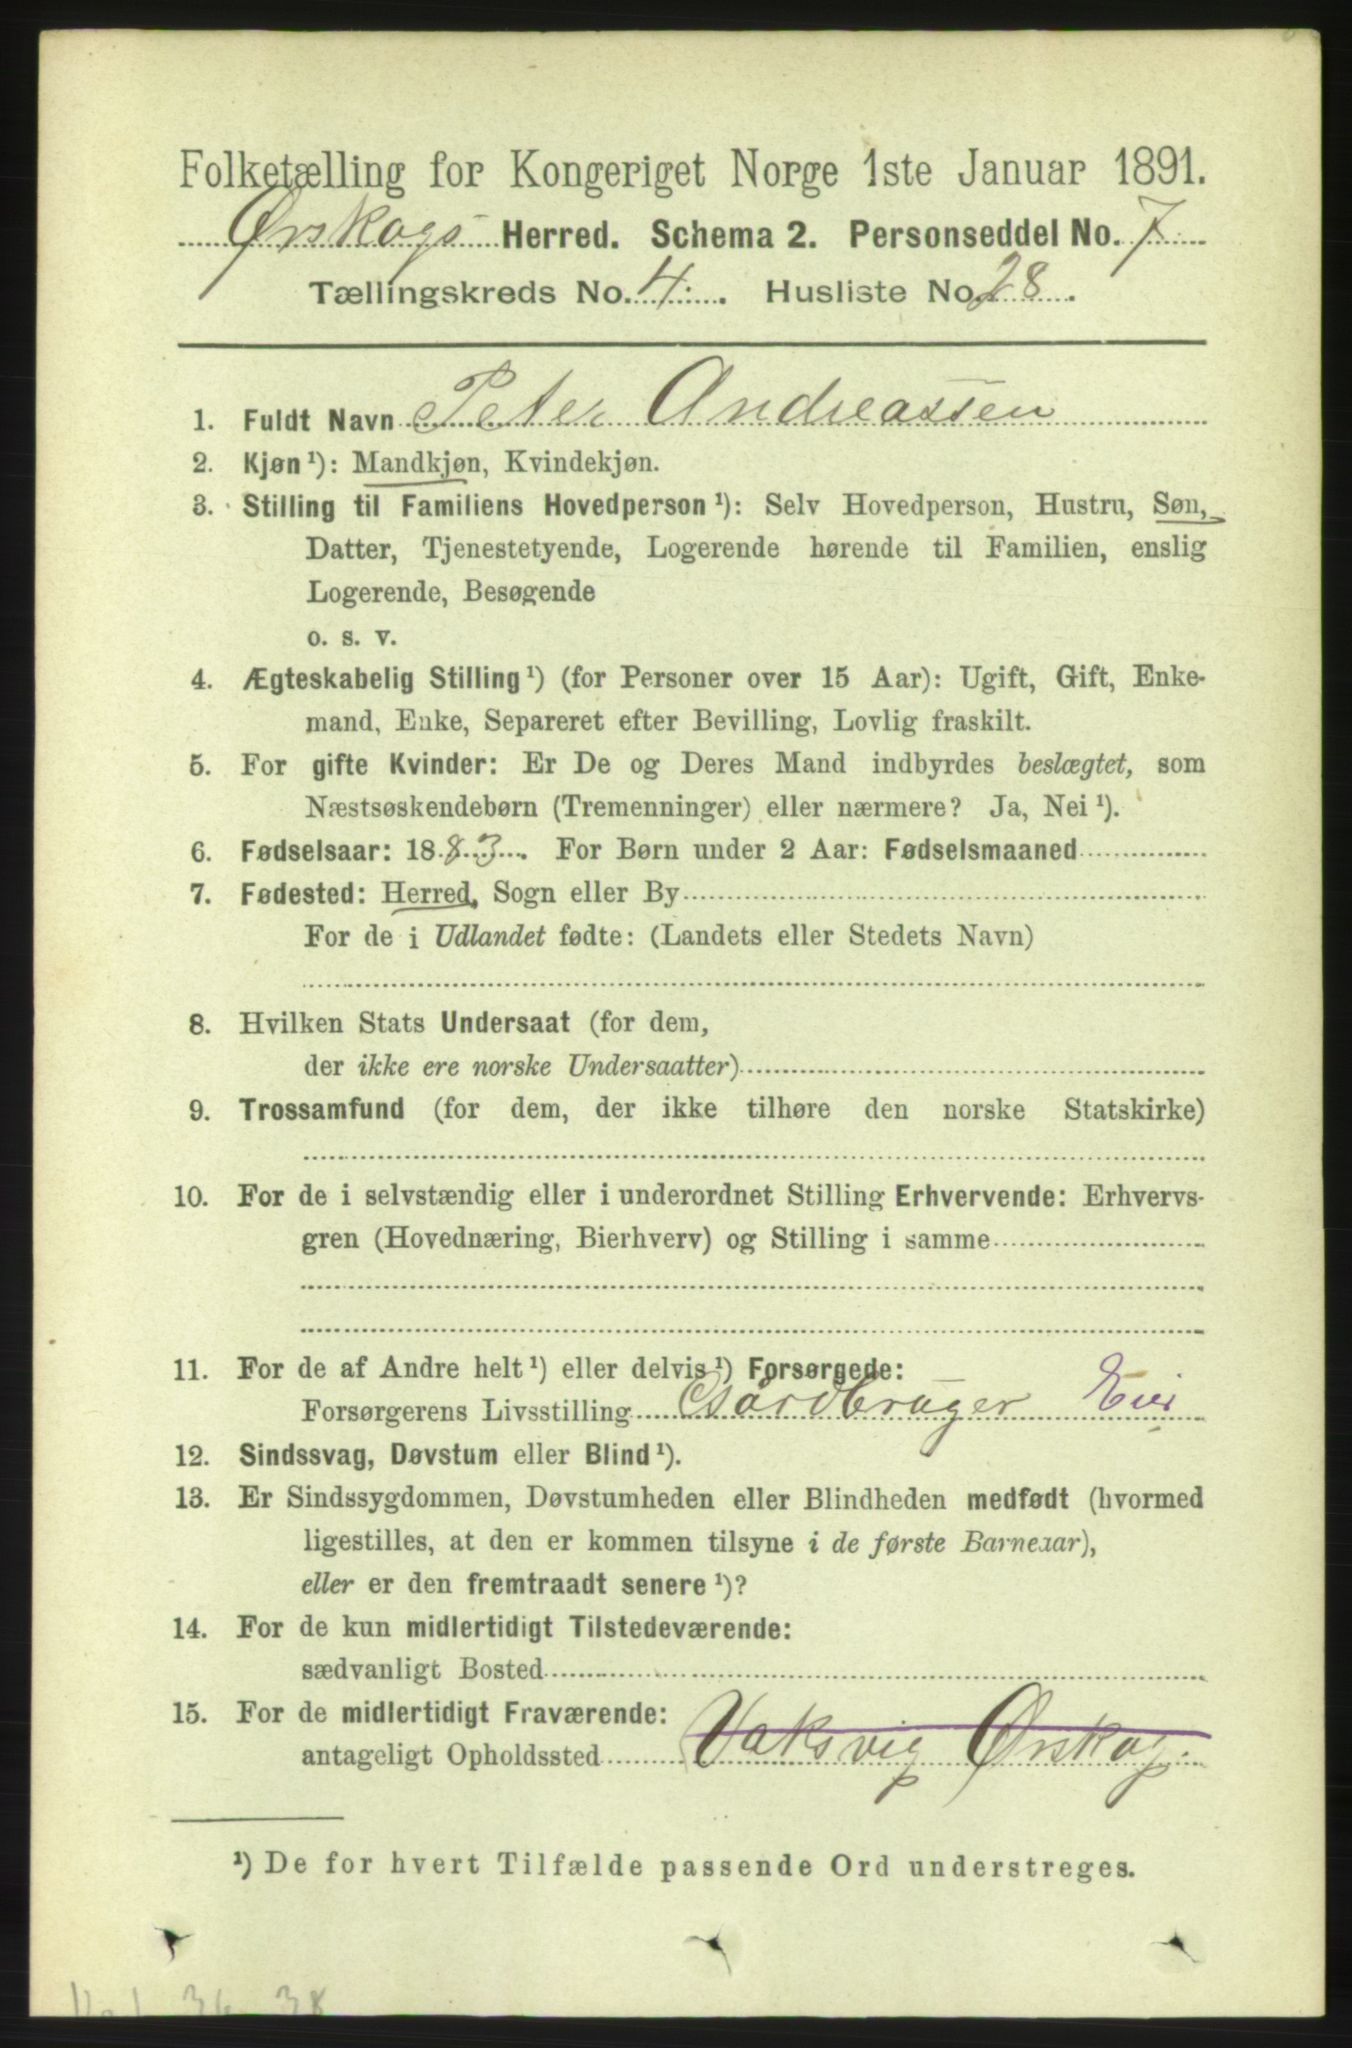 Folketælling for Kongeriget Norge 1ste Januar 1891.
Ørskogs Herred. Schema 2. Personseddel No. 7
Tællingskreds No. 4. Husliste No. 28.
1. Fuldt Navn Peter Andreassen
2. Kjøn ¹): Mandkjøn, Kvindekjøn.
3. Stilling til Familiens Hovedperson ¹): Selv Hovedperson, Hustru, Søn,
Datter, Tjenestetyende, Logerende hørende til Familien, enslig
Logerende, Besøgende
o. s. v.
4. Ægteskabelig Stilling ¹) (for Personer over 15 Aar): Ugift, Gift, Enke-
mand, Enke, Separeret efter Bevilling, Lovlig fraskilt.
5. For gifte Kvinder: Er De og Deres Mand indbyrdes beslægtet, som
Næstsøskendebørn (Tremenninger) eller nærmere? Ja, Nei ¹).
6. Fødselsaar: 1883. For Børn under 2 Aar: Fødselsmaaned
7. Fødested: Herred, Sogn eller By
For de i Udlandet fødte: (Landets eller Stedets Navn)
8. Hvilken Stats Undersaat (for dem,
der ikke ere norske Undersaatter)
9. Trossamfund (for dem, der ikke tilhøre den norske Statskirke)
10. For de i selvstændig eller i underordnet Stilling Erhvervende: Erhvervs-
gren (Hovednæring, Bierhverv) og Stilling i samme
11. For de af Andre helt ¹) eller delvis ¹) Forsørgede:
Forsørgerens Livsstilling Gårdbruger Eier
12. Sindssvag, Døvstum eller Blind ¹).
13. Er Sindssygdommen, Døvstumheden eller Blindheden medfødt (hvormed
ligestilles, at den er kommen tilsyne i de første Barneaar),
eller er den fremtraadt senere ¹)?
14. For de kun midlertidigt Tilstedeværende:
sædvanligt Bosted
15. For de midlertidigt Fraværende:
antageligt Opholdssted Vaksvig Ørskog.
¹) De for hvert Tilfælde passende Ord understreges.
36 38